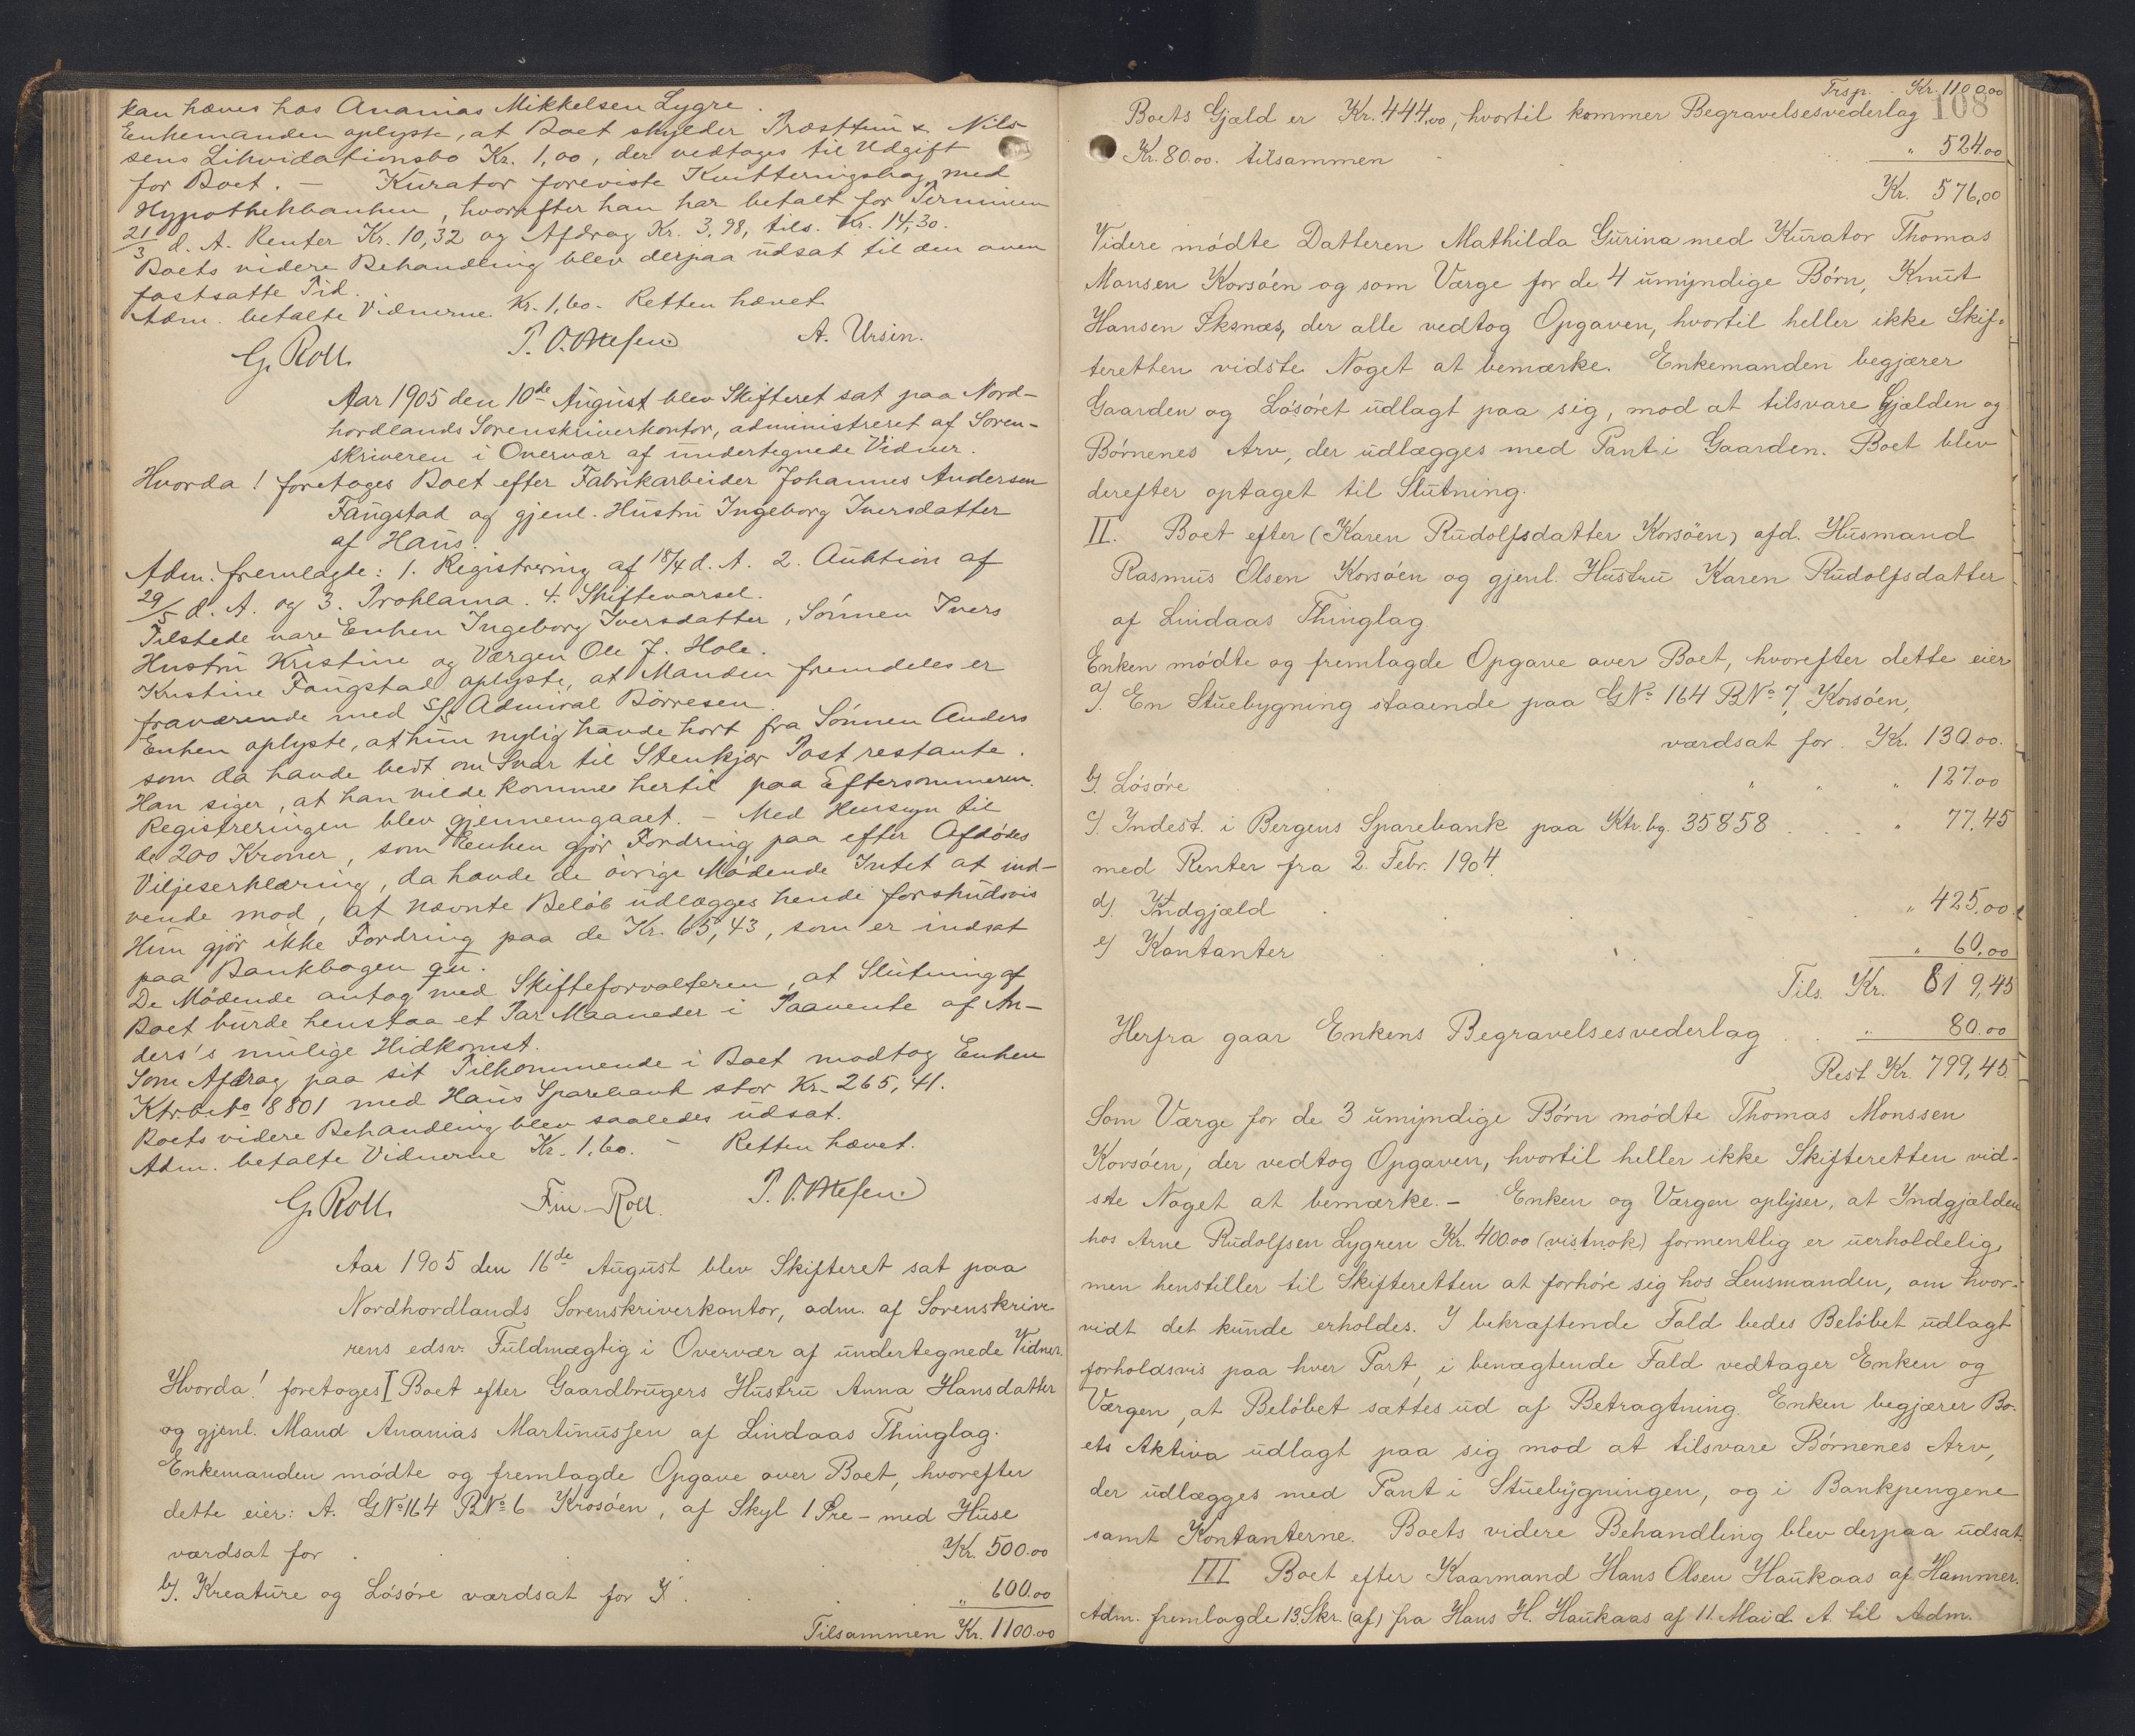 kan hæves hos Ananias Mikkelsen Lygre.
Enkemanden oplyste, at Boet skylder Præsttun & Nil-
sens Likvidationsbo Kr. 1,00, der vedtoges til Udgift
for Boet. – Kurator foreviste Kvitteringsbog med
Hypothekbanken, hvorefter han har betalt for Terminen
21/3 d. A. Renter Kr. 10,32 og Afdrag Kr. 3,98, tils. Kr. 14,30.
Boets videre Behandling blev derpaa udsat til den oven
fastsatte Tid.
Adm. betalte Vidnerne Kr. 1,60. Retten hævet.
G. Roll. A. Ursin.
Aar 1905 den 10de August blev Skifteret sat paa Nord-
hordlands Sorenskriverkontor, administreret af Soren-
skriveren i Overvær af undertegnede Vidner.
Hvorda! foretoges Boet efter Fabrikarbeider Johannes Andersen
Faugstad og gjenl. Hustru Ingeborg Iversdatter
af Haus.
Adm. fremlagde: 1. Registrering af 18/4 d. A. 2. Auktion af
29/5 d. A. og 3. Proklama. 4. Skiftevarsel.
Tilstede vare Enken Ingeborg Iversdatter, Sønnen Ivers
Hustru Kristine og Værgen Ole J. Hole.
Kristine Faugstad oplyste, at Manden fremdeles er
fraværende med S/S Admiral Börresen.
Enken oplyste, at hun nylig havde hørt fra Sønnen Anders
som da havde bedt om Svar til Stenkjær Post restante.
Han siger, at han vilde komme hertil paa Eftersommeren.
Registreringen blev gjennemgaaet. – Med Hensyn til
de 200 Kroner, som Enken gjør Fordring paa efter Afdødes
Viljeserklæring, da havde de øvrige Mødende Intet at ind-
vende mod, at nævnte Beløb udlægges hende forskudsvis
Hun gjør ikke Fordring paa de Kr. 65,43, som er indsat
paa Bankbogen qu.
De Mødende antog med Skifteforvalteren, at Slutning af
Boet burde henstaa et Par Maaneder i Paavente af An-
ders's mulige Hidkomst.
Som Afdrag paa sit Tilkommende i Boet modtog Enken
Ktr. 8801 med Haus Sparebank stor Kr. 265,41.
Boets videre Behandling blev saaledes udsat.
Adm. betalte Vidnerne Kr. 1.60. – Retten hævet.
G. Roll. Finn Roll.
Aar 1905 den 16de August blev Skifteret sat paa
Nordhordlands Sorenskriverkontor, adm. af Sorenskrive
rens edsv. Fuldmægtig i Overvær af undertegnede Vidner.
Hvorda! foretoges I Boet efter Gaardbrugers Hustru Anna Hansdatter
og gjenl. Mand Ananias Martinussen af Lindaas Thinglag.
Enkemanden mødte og fremlagde Opgave over Boet, hvorefter
dette eier: A. GNo 164 BNo 6 Krosøen, af Skyl 1 Øre – med Huse
værdsat for Kr. 500.00
b). Kreature og Løsøre værdsat for „ 600.00
Tilsammen Kr. 1100.00
Trsp. Kr. 1100.00
108
Boets Gjæld er Kr. 444.00, hvortil kommer Begravelsesvederlag
Kr. 80.00. tilsammen „ 524.00
Kr. 576,00
Videre mødte Datteren Mathilda Gurina med Kurator Thomas
Monsen Korsøen og som Værge for de 4 umyndige Børn, Knut
Hansen Eksnæs, der alle vedtog Opgaven, hvortil heller ikke Skif-
teretten vidste Noget at bemærke. Enkemanden begjærer
Gaarden og Løsøret udlagt paa sig, mod at tilsvare Gjælden og
Børnenes Arv, der udlægges med Pant i Gaarden. Boet blev
derefter optaget til Slutning.
II. Boet efter (Karen Rudolfsdatter Korsøen) afd. Husmand
Rasmus Olsen Korsøen og gjenl. Hustru Karen Rudolfsdatter
af Lindaas Thinglag.
Enken mødte og fremlagde Opgave over Boet, hvorefter dette eier
a). En Stuebygning staaende paa GNo 164 BNo 7, Korsøen,
værdsat for Kr. 130.00.
b). Løsøre „ „ „ 127.00
c). Indest. i Bergens Sparebank paa Ktr. bg. 35858 „ 77,45
med Renter fra 2. Febr. 1904.
d). Indgjæld „ 425,00
e) Kontanter „ 60,00
Tils. Kr. 819,45
Herfra gaar Enkens Begravelsesvederlag „ 80.00
Rest Kr. 799,45
Som Værge for de 3 umyndige Børn mødte Thomas Monssen
Korsøen, der vedtog Opgaven, hvortil heller ikke Skifteretten vid-
ste Noget at bemærke. – Enken og Værgen oplyser, at Indgjælden
hos Arne Rudolfsen Lygren Kr. 400.00 (vistnok) formentlig er uerholdelig,
men henstiller til Skifteretten at forhøre sig hos Lensmanden, om hvor-
vidt det kunde erholdes. I bekræftende Fald bedes Beløbet udlagt
forholdsvis paa hver Part, i benægtende Fald vedtager Enken og
Værgen, at Beløbet sættes ud af Betragtning. Enken begjærer Bo-
ets Aktiva udlagt paa sig mod at tilsvare Børnenes Arv,
der udlægges med Pant i Stuebygningen, og i Bankpengene
samt Kontanterne. Boets videre Behandling blev derpaa udsat.
III Boet efter Kaarmand Hans Olsen Haukaas af Hammer.
Adm. fremlagde 13. Skr. (af) fra Hans H. Haukaas af 11. Mai d. A. til Adm.